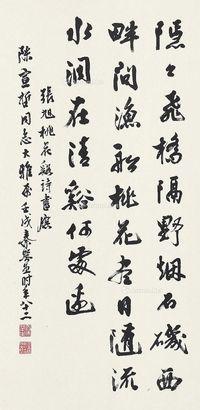 隱々飛橋隔野烟石磯西
畔問漁船桃花尽日隨流
水洞在清谿何處邊
張旭桃花谿詩書應
陳宣哲同志大雅屬壬戌秦咢生时年八十二